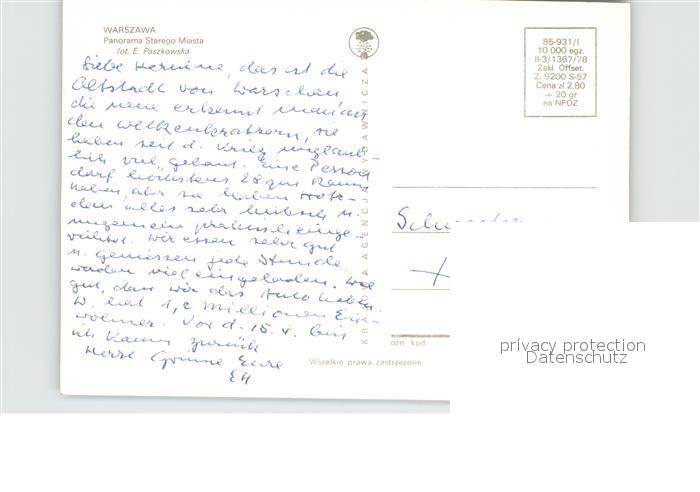 WARSZAWA
Panorama Starego Miasta
fot. E. Paszkowska
Liebe Hermine, das ist die
Altstadt von Warschau,
die neue erkennt man an
den Wolkenkratzern, sie
haben seit d. Krieg unglaub-
lich viel gebaut. Eine Person
darf höchstens 28 qm Raum
haben, aber sie haben trotz-
dem alles sehr hübsch u.
ungemein praktisch einge-
richtet. Wir essen sehr gut
u. geniessen jede Stunde,
werden viel eingeladen. Wie
gut, dass wir das Auto haben
W. hat 1,2 Millionen Ein-
wohner. Vor d. 15. bin
ich kaum zurück
Herzl. Grüsse Eure
KRAJOWA AGENCJA WYDAWNICZA
Wszelkie prawa zastrzeżone
85-931/I
10 000 egz.
II-3/1367/78
Zakł. Offset.
Z. 9200 S-57
Cena zł 2,80
+ 20 gr
na NFOZ
ozn kod
privacy protection
Datenschutz